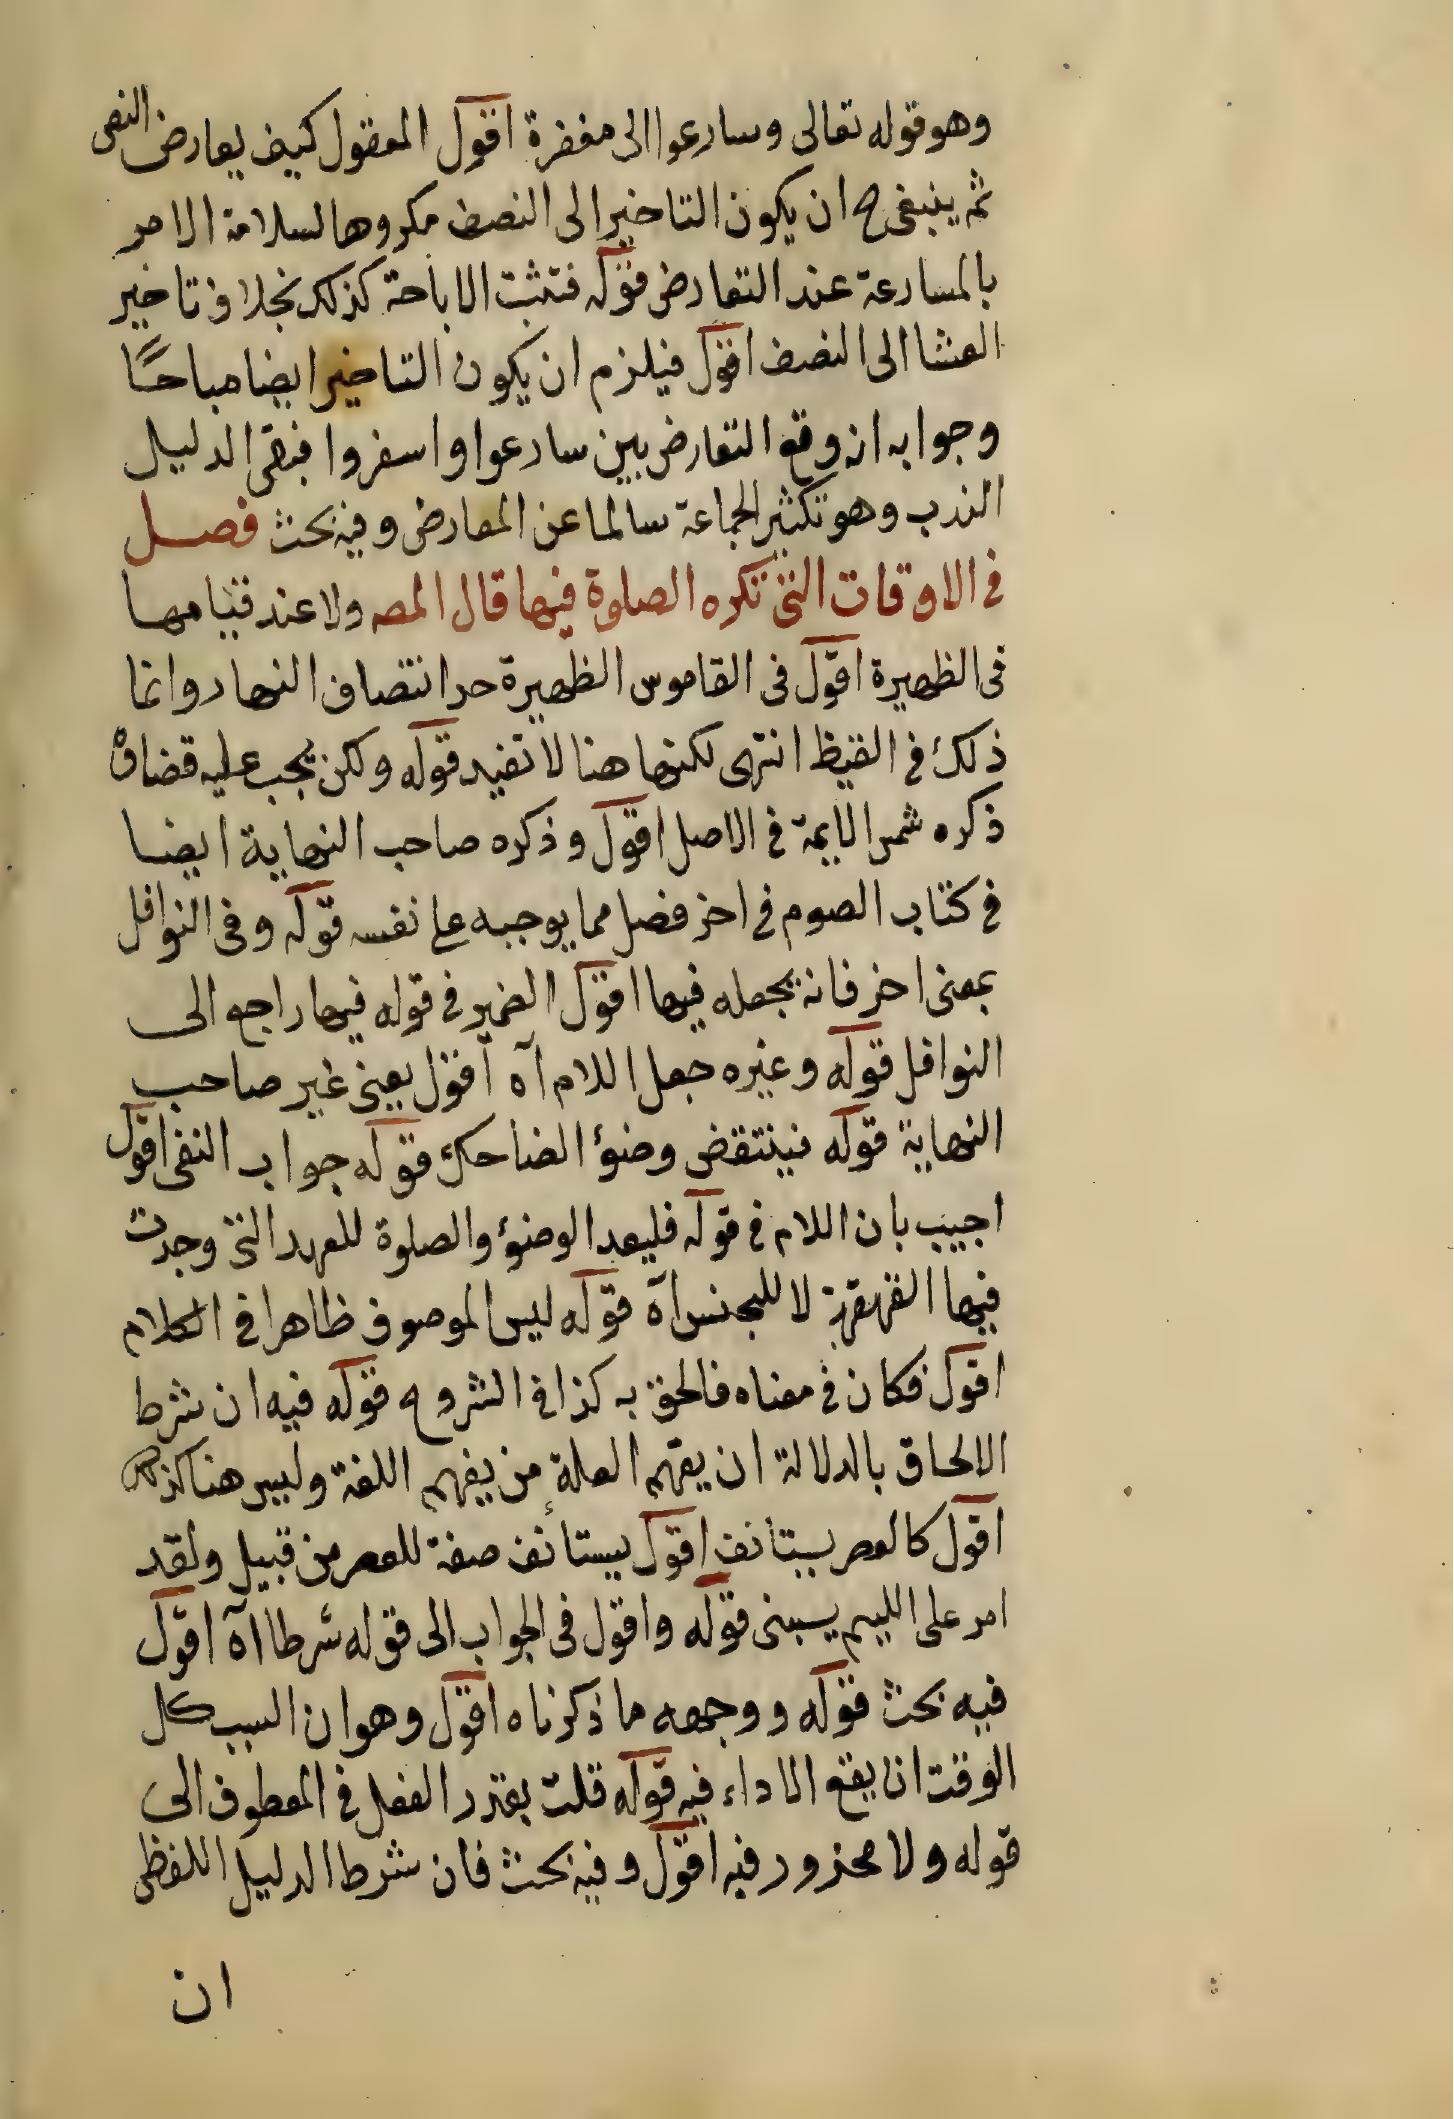 وهو قوله تعالى وسارعوا الى مغفرة اقول المعقول كيف يعارض النص
ثم ينبغى ح ان يكون التاخير الى النصف مكروها لسلامة الامر
بالمسارعة عند التعارض قوله فتثبت الاباحة كذلك بخلاف تاخير
العشا الى النصف اقول فيلزم ان يكون التاخير ايضا مباحا
وجوابه انه وقع التعارض بين سارعوا واسفروا فبقى الدليل
الندب وهو تكثير الجماعة سالما عن المعارض وفيه بحث فصل
فى الاوقات التى تكره الصلوة فيها قال المص ولا عند قيامها
فى الظهيرة اقول فى القاموس الظهيرة حد انتصاف النهار وانما
ذلك فى القيظ انتهى لكنها هنا لا تفيد قوله ولكن يجب عليه قضاؤه
ذكره شمس الايمة فى الاصل اقول وذكره صاحب النهاية ايضا
فى كتاب الصوم فى اخر فصل مما يوجبه على نفسه قوله وفى النوافل
بمعنى اخر فانه يجعله فيها اقول الضمير فى قوله فيها راجع الى
النوافل قوله وغيره جعل اللام آه أقول يعنى غير صاحب
النهاية قوله فينتقض وضؤ الضاحك قوله جواب النفى اقول
اجيب بان اللام فى قوله فليعد الوضؤ والصلوة للعهد التى وجدت
فيها القهقهة لا للجنس آه قوله ليس الموصوف ظاهرا فى الكلام
اقول فكان فى معناه فالحق به كذا فى الشروح قوله فيه ان شرط
الالحاق بالدلالة ان يفهم العلة من يفهم اللغة وليس هنا كذلك
اقول كالعصر يستانف اقول يستأنف صفة للعصر من قبيل ولقد
امر على الليم يسبنى قوله واقول فى الجواب الى قوله شرطا آه اقول
فيه بحث قوله ووجهه ما ذكرناه اقول وهو ان السبب كل
الوقت ان يقع الاداء فيه قوله قلت يقدر الفعل فى المعطوف الى
قوله ولا محذور فيه اقول وفيه بحث فان شرط الدليل اللفظى
ان